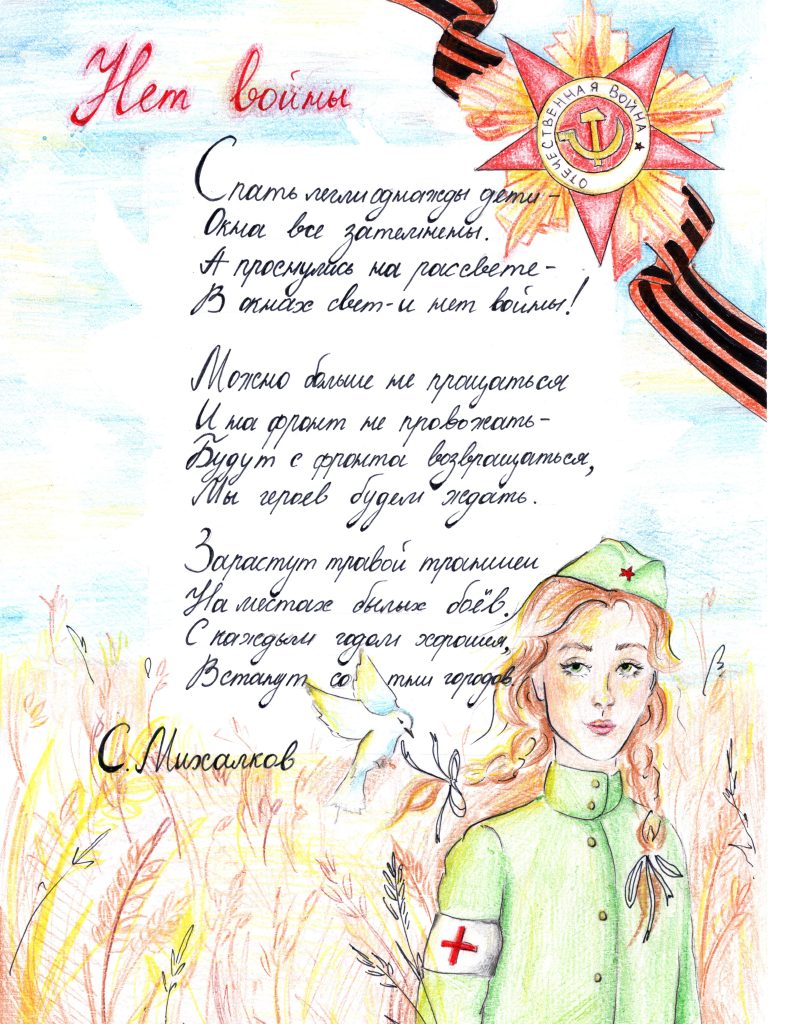 Нет войны
ОТЕЧЕСТВЕННАЯ ВОЙНА
Спать легли однажды дети -
Окна все затемнены.
А проснулись на рассвете -
В окнах свет - и нет войны!
Можно больше не прощаться
И на фронт не провожать -
Будут с фронта возвращаться,
Мы героев будем ждать.
Зарастут травой траншеи
На местах былых боёв.
С каждым годом хорошея,
Встанут сотни городов.
С. Михалков